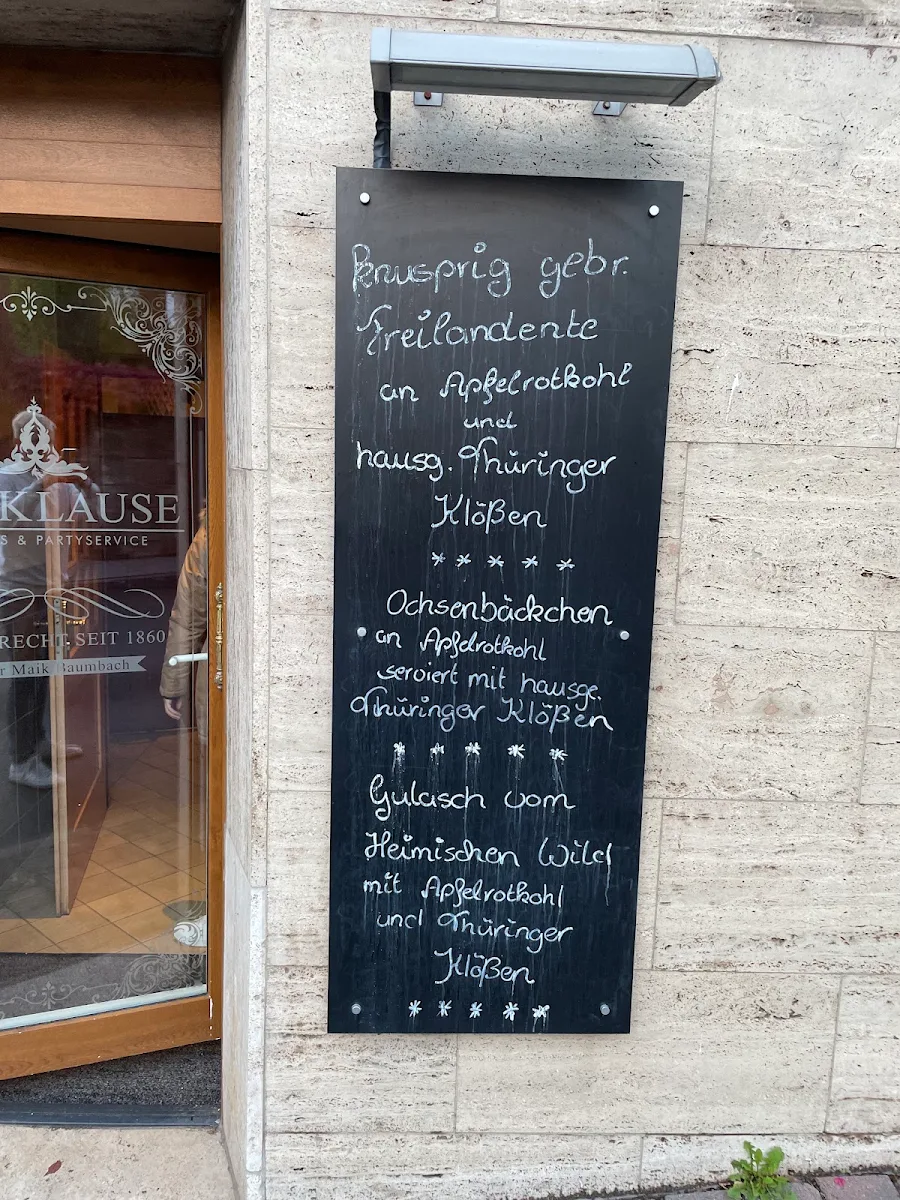 Knusprig gebr.
Freilandente
an Apfelrotkohl
und
hausg. Thüringer
Klößen
* * * * *
Ochsenbäckchen
an Apfelrotkohl
serviert mit hausge.
Thüringer Klößen
* * * * *
Gulasch vom
Heimischen Wild
mit Apfelrotkohl
und Thüringer
Klößen
* * * * *
KLAUSE
S & PARTYSERVICE
RECHT SEIT 1860
r Maik Baumbach